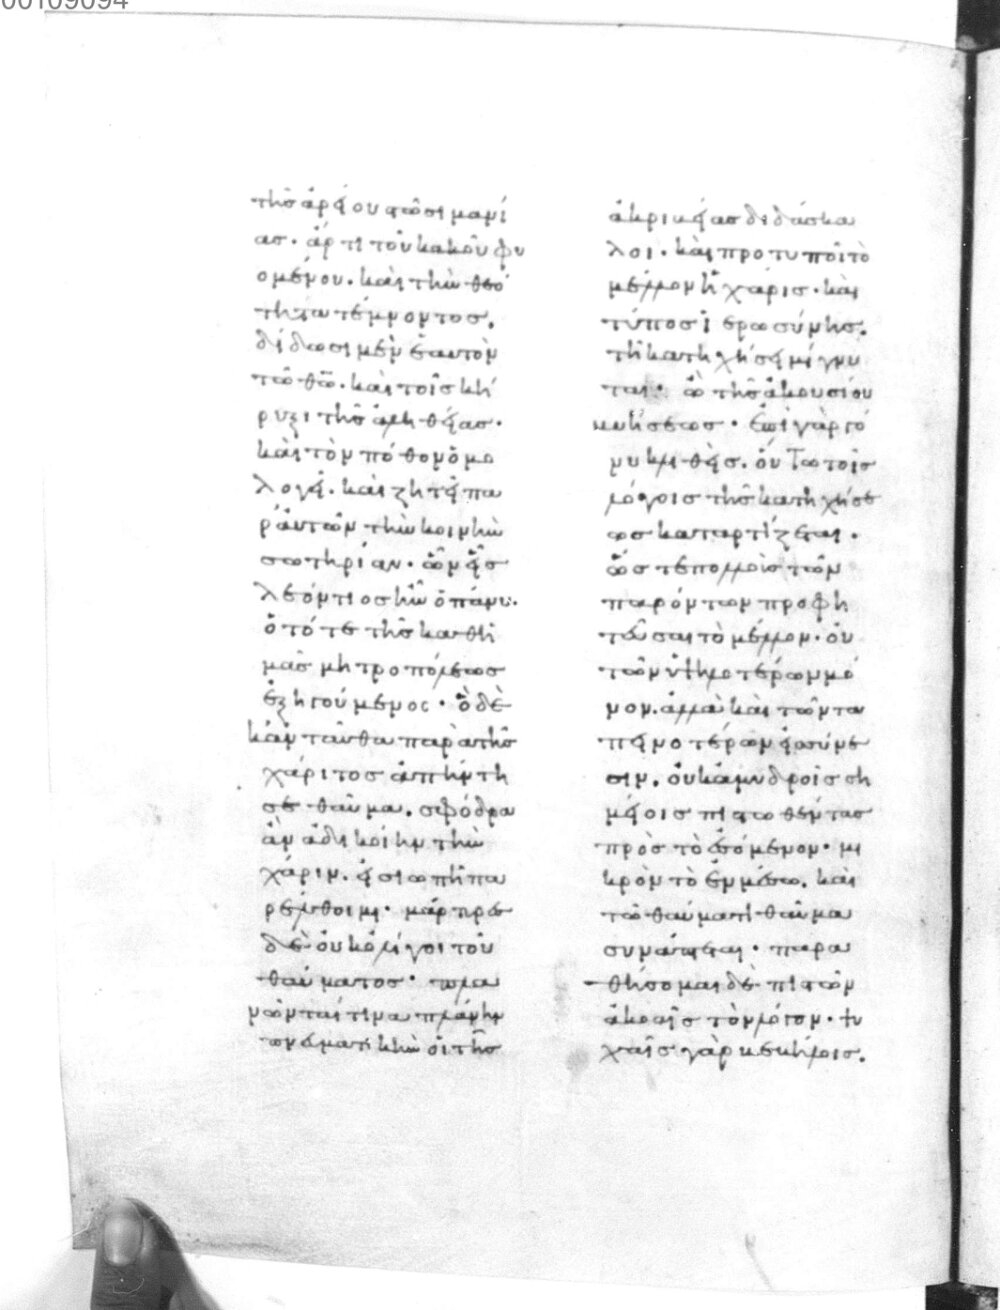 00109094
τῆς ἀρείου φῶσι μανί
ας. ἄρτι τοῦ κακοῦ φυ
ομένου. καὶ τὴν θεό
τητα τέμνοντος.
δίδωσι μὲν ἑαυτὸν
τῶ θῶ. καὶ τοῖς κή
ρυξι τῆς ἀληθείας.
καὶ τὸν πόθον ὁμο
λογεῖ. καὶ ζητεῖ πα
ρ' αὐτῶν τὴν κοινὴν
σωτηρίαν. ὧν εἷς
λεόντιος ἦν ὁ πάνυ.
ὁ τότε τῆς καθ' ἡ
μᾶς μητροπόλεως
ἐξηγούμενος. ὃ δὲ
κἀνταῦθα παρὰ τῆς
χάριτος ἀπηντή
σε θαῦμα. σφόδρα
ἂν ἀδικοίην τὴν
χάριν. εἰ σιωπῆ πα
ρέλθοιμι. μάρτυρες
δὲ οὐκ ὀλίγοι τοῦ
θαύματος. πλα
νῶνταί τινα πλάνην
πνευματικὴν οἱ τῆς
ἀκριβείας διδάσκα
λοι. καὶ προτυποῖ τὸ
μέλλον ἡ χάρις. καὶ
τύπος ἱερωσύνης.
τῆ κατηχήσει μίγνυ
ται. ὢ τῆς ἀκουσίου
μυήσεως. ἐπὶ γὰρ γό
νυ κλιθεὶς. οὕτω τοῖς
λόγοις τῆς κατηχήσε
ως καταρτίζεται.
ὥστε πολλοὺς τῶν
παρόντων προφη
τεῦσαι τὸ μέλλον. οὐ
τῶν ὑψηλοτέρων μό
νον. ἀλλὰ καὶ τῶν τα
πεινοτέρων εἰς σύνε
σιν. οὐκ ἀμυδροῖς ση
μείοις πιστωθέντας
πρὸς τὸ ἐσόμενον. μι
κρὸν τὸ ἐν μέσω. καὶ
τῶ θαύματι θαῦμα
συνάπτεται. παρα
θήσομαι δὲ πιστῶν
ἀκοαῖς τὸν λόγον. ψυ
χαῖς γὰρ βεβήλοις.